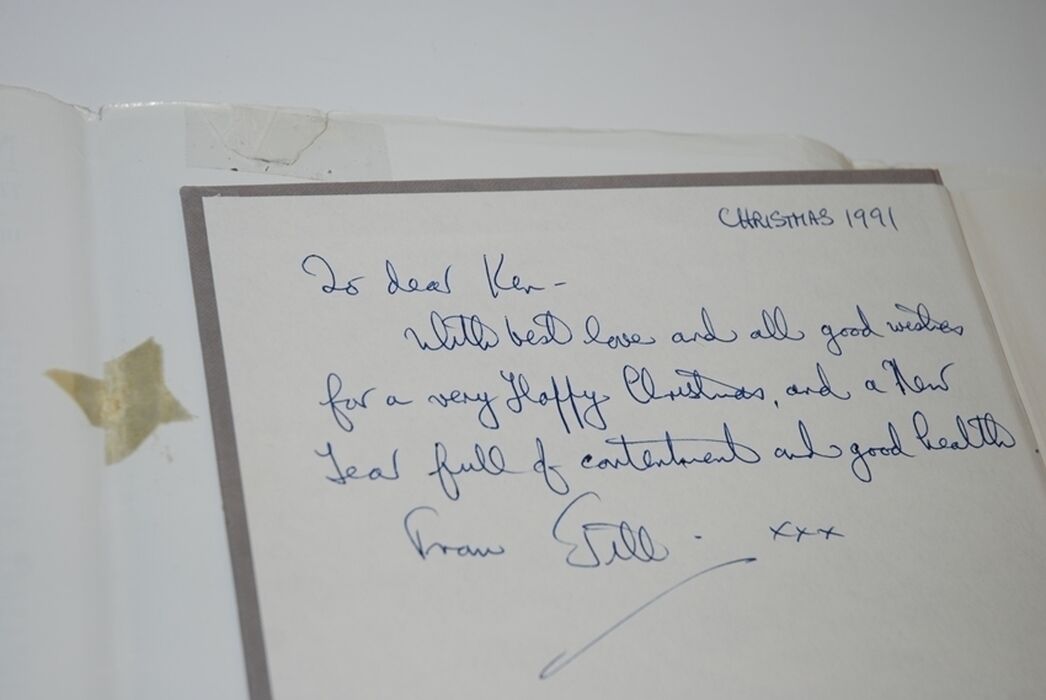 CHRISTMAS 1991
To dear Ken -
With best love and all good wishes
for a very Happy Christmas, and a New
Year full of contentment and good health
From xxx